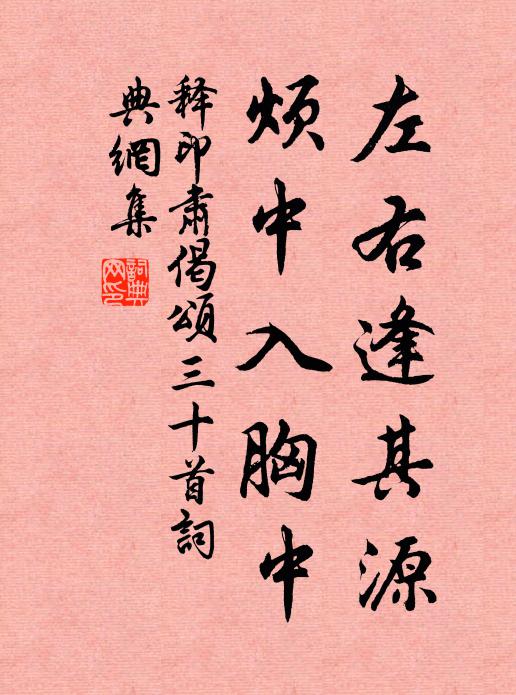 左右逢其源
烦中入胸中
释印肃偈颂三十首詞
典網集
詞典网印